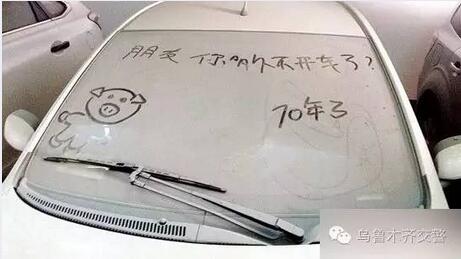 朋友 你多久不开车了?
10年了
乌鲁木齐交警